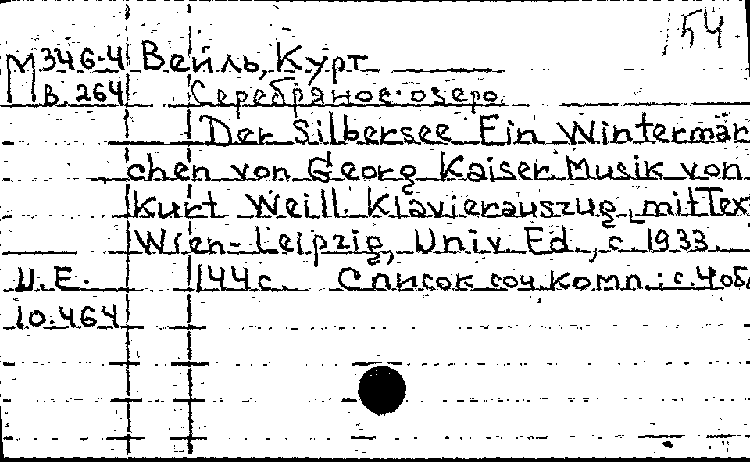 154
М346-4 Вейль, Курт
В. 264 Серебряное озеро
Der Silbersee Ein Wintermär
chen von Georg Kaiser. Musik von
Kurt Weill. Klavierauszug mit Tex
Wien-Leipzig, Univ. Ed., c. 1933.
U.E. 144 с. Список соч. комп.: с. 4 обл
10.464